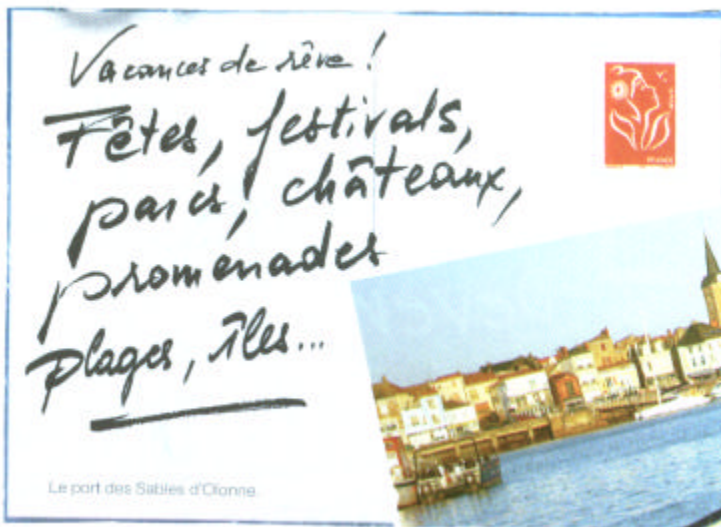 Vacances de rêve !
Fêtes, festivals,
parcs, châteaux,
promenades
plages, îles...
Le port des Sables d'Olonne.